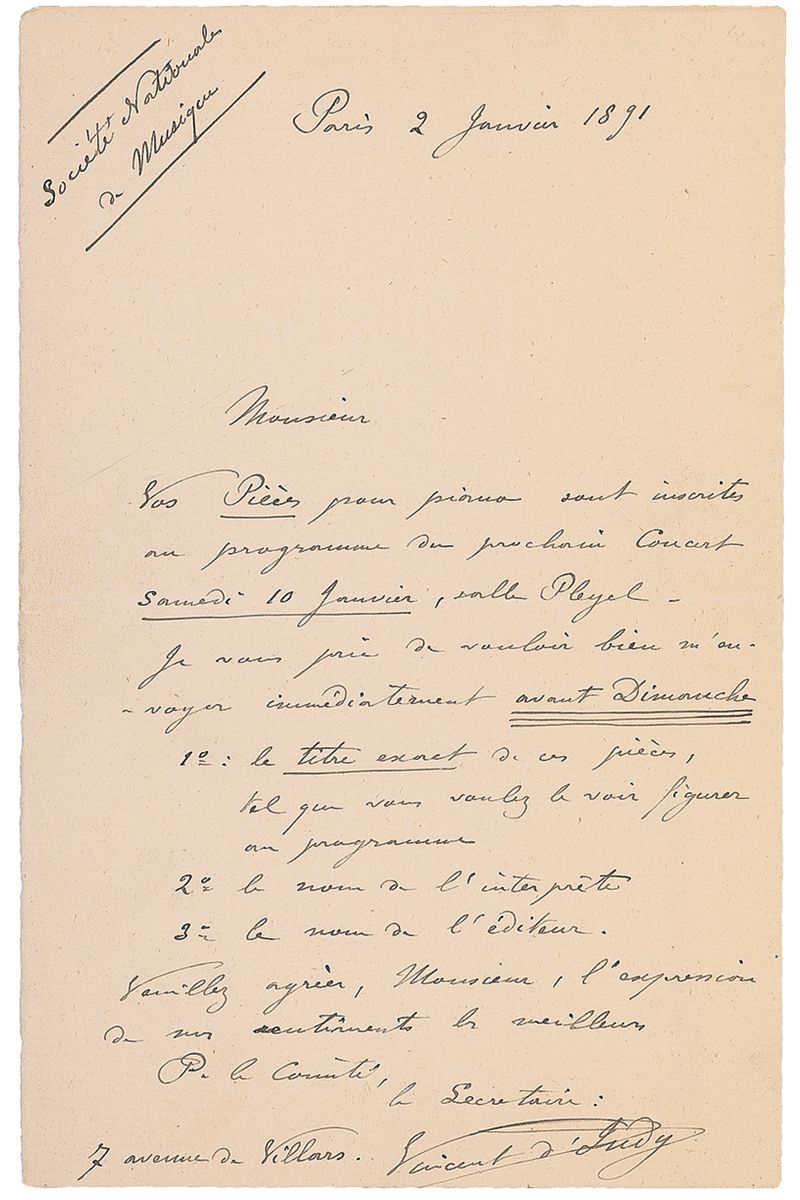 Société Nationale
de Musique
Paris 2 Janvier 1891
Monsieur
Vos Pièces pour piano sont inscrites
au programme du prochain Concert
Samedi 10 Janvier, salle Pleyel -
Je vous prie de vouloir bien m'en-
-voyer immédiatement avant Dimanche
1º : le titre exact de ces pièces,
tel que vous voulez le voir figurer
au programme
2º le nom de l'interprète
3º le nom de l'éditeur.
Veuillez agréer, Monsieur, l'expression
de mes sentiments les meilleurs
Pr le Comité,
le Secrétaire :
7 avenue de Villars. Vincent d'Indy